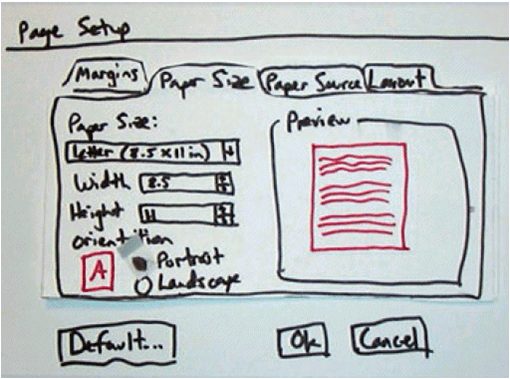 Page Setup
Margins Paper Size Paper Source Layout
Paper Size:
Letter (8.5 x 11 in)
Width 8.5
Height 11
orientition
A
Portrait
Landscape
Preview
Default... Ok Cancel